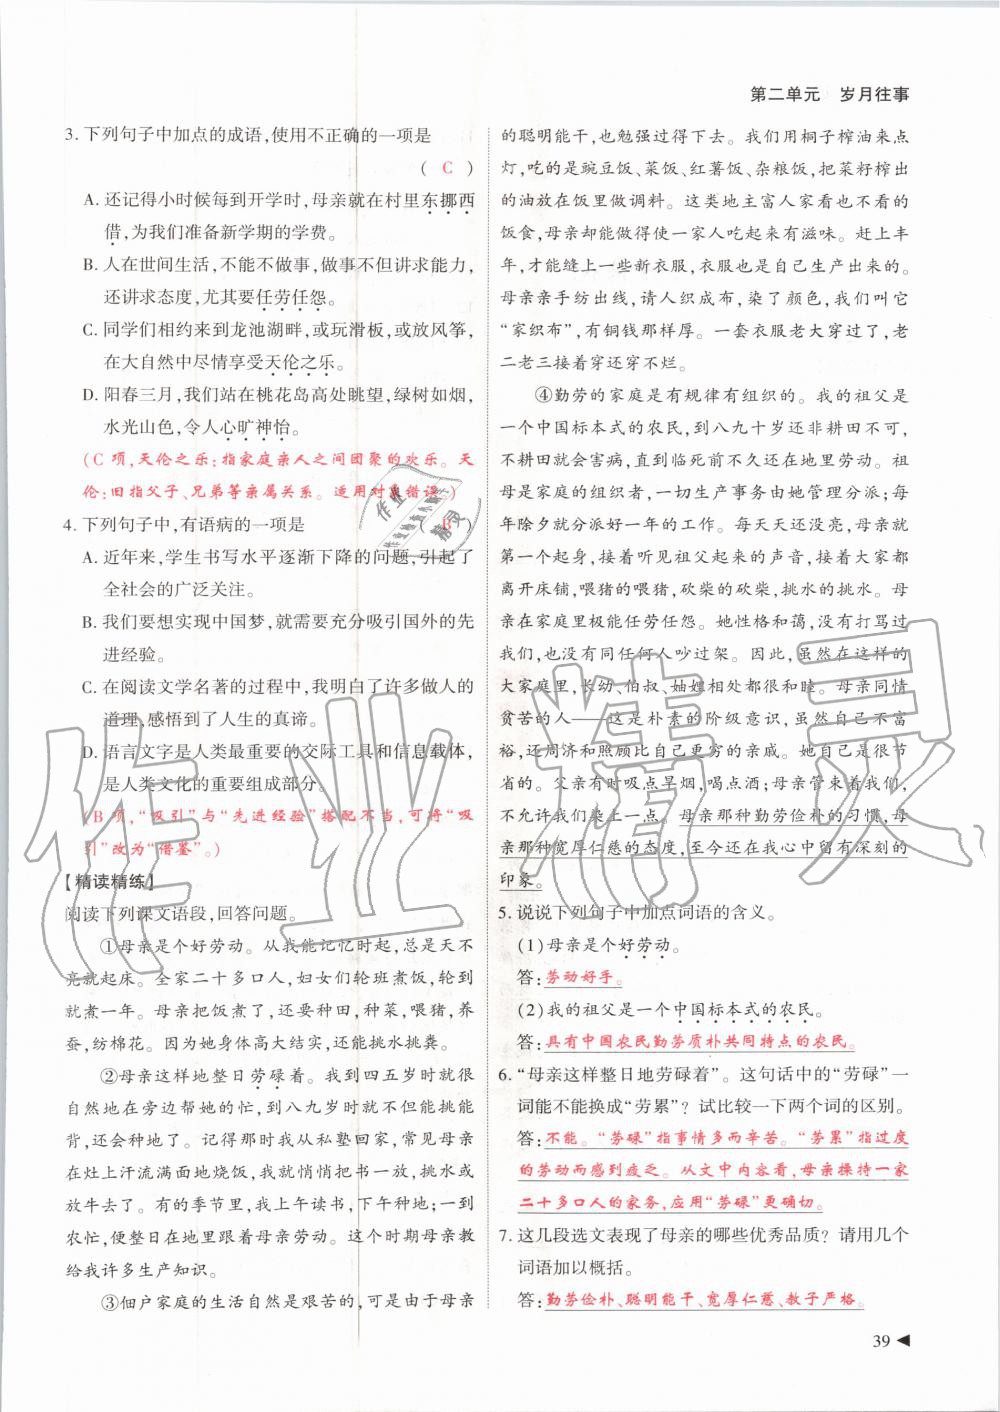 第二单元　岁月往事
3. 下列句子中加点的成语,使用不正确的一项是
( C )
A. 还记得小时候每到开学时,母亲就在村里东挪西
借,为我们准备新学期的学费。
B. 人在世间生活,不能不做事,做事不但讲求能力,
还讲求态度,尤其要任劳任怨。
C. 同学们相约来到龙池湖畔,或玩滑板,或放风筝,
在大自然中尽情享受天伦之乐。
D. 阳春三月,我们站在桃花岛高处眺望,绿树如烟,
水光山色,令人心旷神怡。
(C 项,天伦之乐:指家庭亲人之间团聚的欢乐。天
伦:旧指父子、兄弟等亲属关系。适用对象错误。)
4. 下列句子中,有语病的一项是 ( B )
A. 近年来,学生书写水平逐渐下降的问题,引起了
全社会的广泛关注。
B. 我们要想实现中国梦,就需要充分吸引国外的先
进经验。
C. 在阅读文学名著的过程中,我明白了许多做人的
道理,感悟到了人生的真谛。
D. 语言文字是人类最重要的交际工具和信息载体,
是人类文化的重要组成部分。
(B 项,“吸引”与“先进经验”搭配不当,可将“吸
引”改为“借鉴”。)
【精读精练】
阅读下列课文语段,回答问题。
①母亲是个好劳动。从我能记忆时起,总是天不
亮就起床。全家二十多口人,妇女们轮班煮饭,轮到
就煮一年。母亲把饭煮了,还要种田,种菜,喂猪,养
蚕,纺棉花。因为她身体高大结实,还能挑水挑粪。
②母亲这样地整日劳碌着。我到四五岁时就很
自然地在旁边帮她的忙,到八九岁时就不但能挑能
背,还会种地了。记得那时我从私塾回家,常见母亲
在灶上汗流满面地烧饭,我就悄悄把书一放,挑水或
放牛去了。有的季节里,我上午读书,下午种地;一到
农忙,便整日在地里跟着母亲劳动。这个时期母亲教
给我许多生产知识。
③佃户家庭的生活自然是艰苦的,可是由于母亲
的聪明能干,也勉强过得下去。我们用桐子榨油来点
灯,吃的是豌豆饭、菜饭、红薯饭、杂粮饭,把菜籽榨出
的油放在饭里做调料。这类地主富人家看也不看的
饭食,母亲却能做得使一家人吃起来有滋味。赶上丰
年,才能缝上一些新衣服,衣服也是自己生产出来的。
母亲亲手纺出线,请人织成布,染了颜色,我们叫它
“家织布”,有铜钱那样厚。一套衣服老大穿过了,老
二老三接着穿还穿不烂。
④勤劳的家庭是有规律有组织的。我的祖父是
一个中国标本式的农民,到八九十岁还非耕田不可,
不耕田就会害病,直到临死前不久还在地里劳动。祖
母是家庭的组织者,一切生产事务由她管理分派,每
年除夕就分派好一年的工作。每天天还没亮,母亲就
第一个起身,接着听见祖父起来的声音,接着大家都
离开床铺,喂猪的喂猪,砍柴的砍柴,挑水的挑水。母
亲在家庭里极能任劳任怨。她性格和蔼,没有打骂过
我们,也没有同任何人吵过架。因此,虽然在这样的
大家庭里,长幼、伯叔、妯娌相处都很和睦。母亲同情
贫苦的人——这是朴素的阶级意识,虽然自己不富
裕,还周济和照顾比自己更穷的亲戚。她自己是很节
省的。父亲有时吸点旱烟,喝点酒;母亲管束着我们,
不允许我们染上一点。母亲那种勤劳俭朴的习惯,母
亲那种宽厚仁慈的态度,至今还在我心中留有深刻的
印象。
5. 说说下列句子中加点词语的含义。
(1)母亲是个好劳动。
答:劳动好手。
(2)我的祖父是一个中国标本式的农民。
答:具有中国农民勤劳质朴共同特点的农民。
6. “母亲这样整日地劳碌着”。这句话中的“劳碌”一
词能不能换成“劳累”？试比较一下两个词的区别。
答:不能。“劳碌”指事情多而辛苦。“劳累”指过度
的劳动而感到疲乏。从文中内容看,母亲操持一家
二十多口人的家务,应用“劳碌”更确切。
7. 这几段选文表现了母亲的哪些优秀品质？请用几个
词语加以概括。
答:勤劳俭朴、聪明能干、宽厚仁慈、教子严格。
39
作业精灵